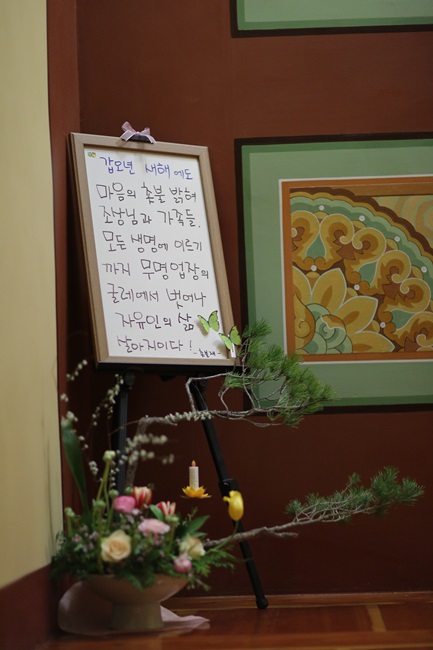 갑오년 새해에도
마음의 촛불 밝혀
조상님과 가족들,
모든 생명에 이르기
까지 무명업장의
굴레에서 벗어나
자유인의 삶
살아지이다!